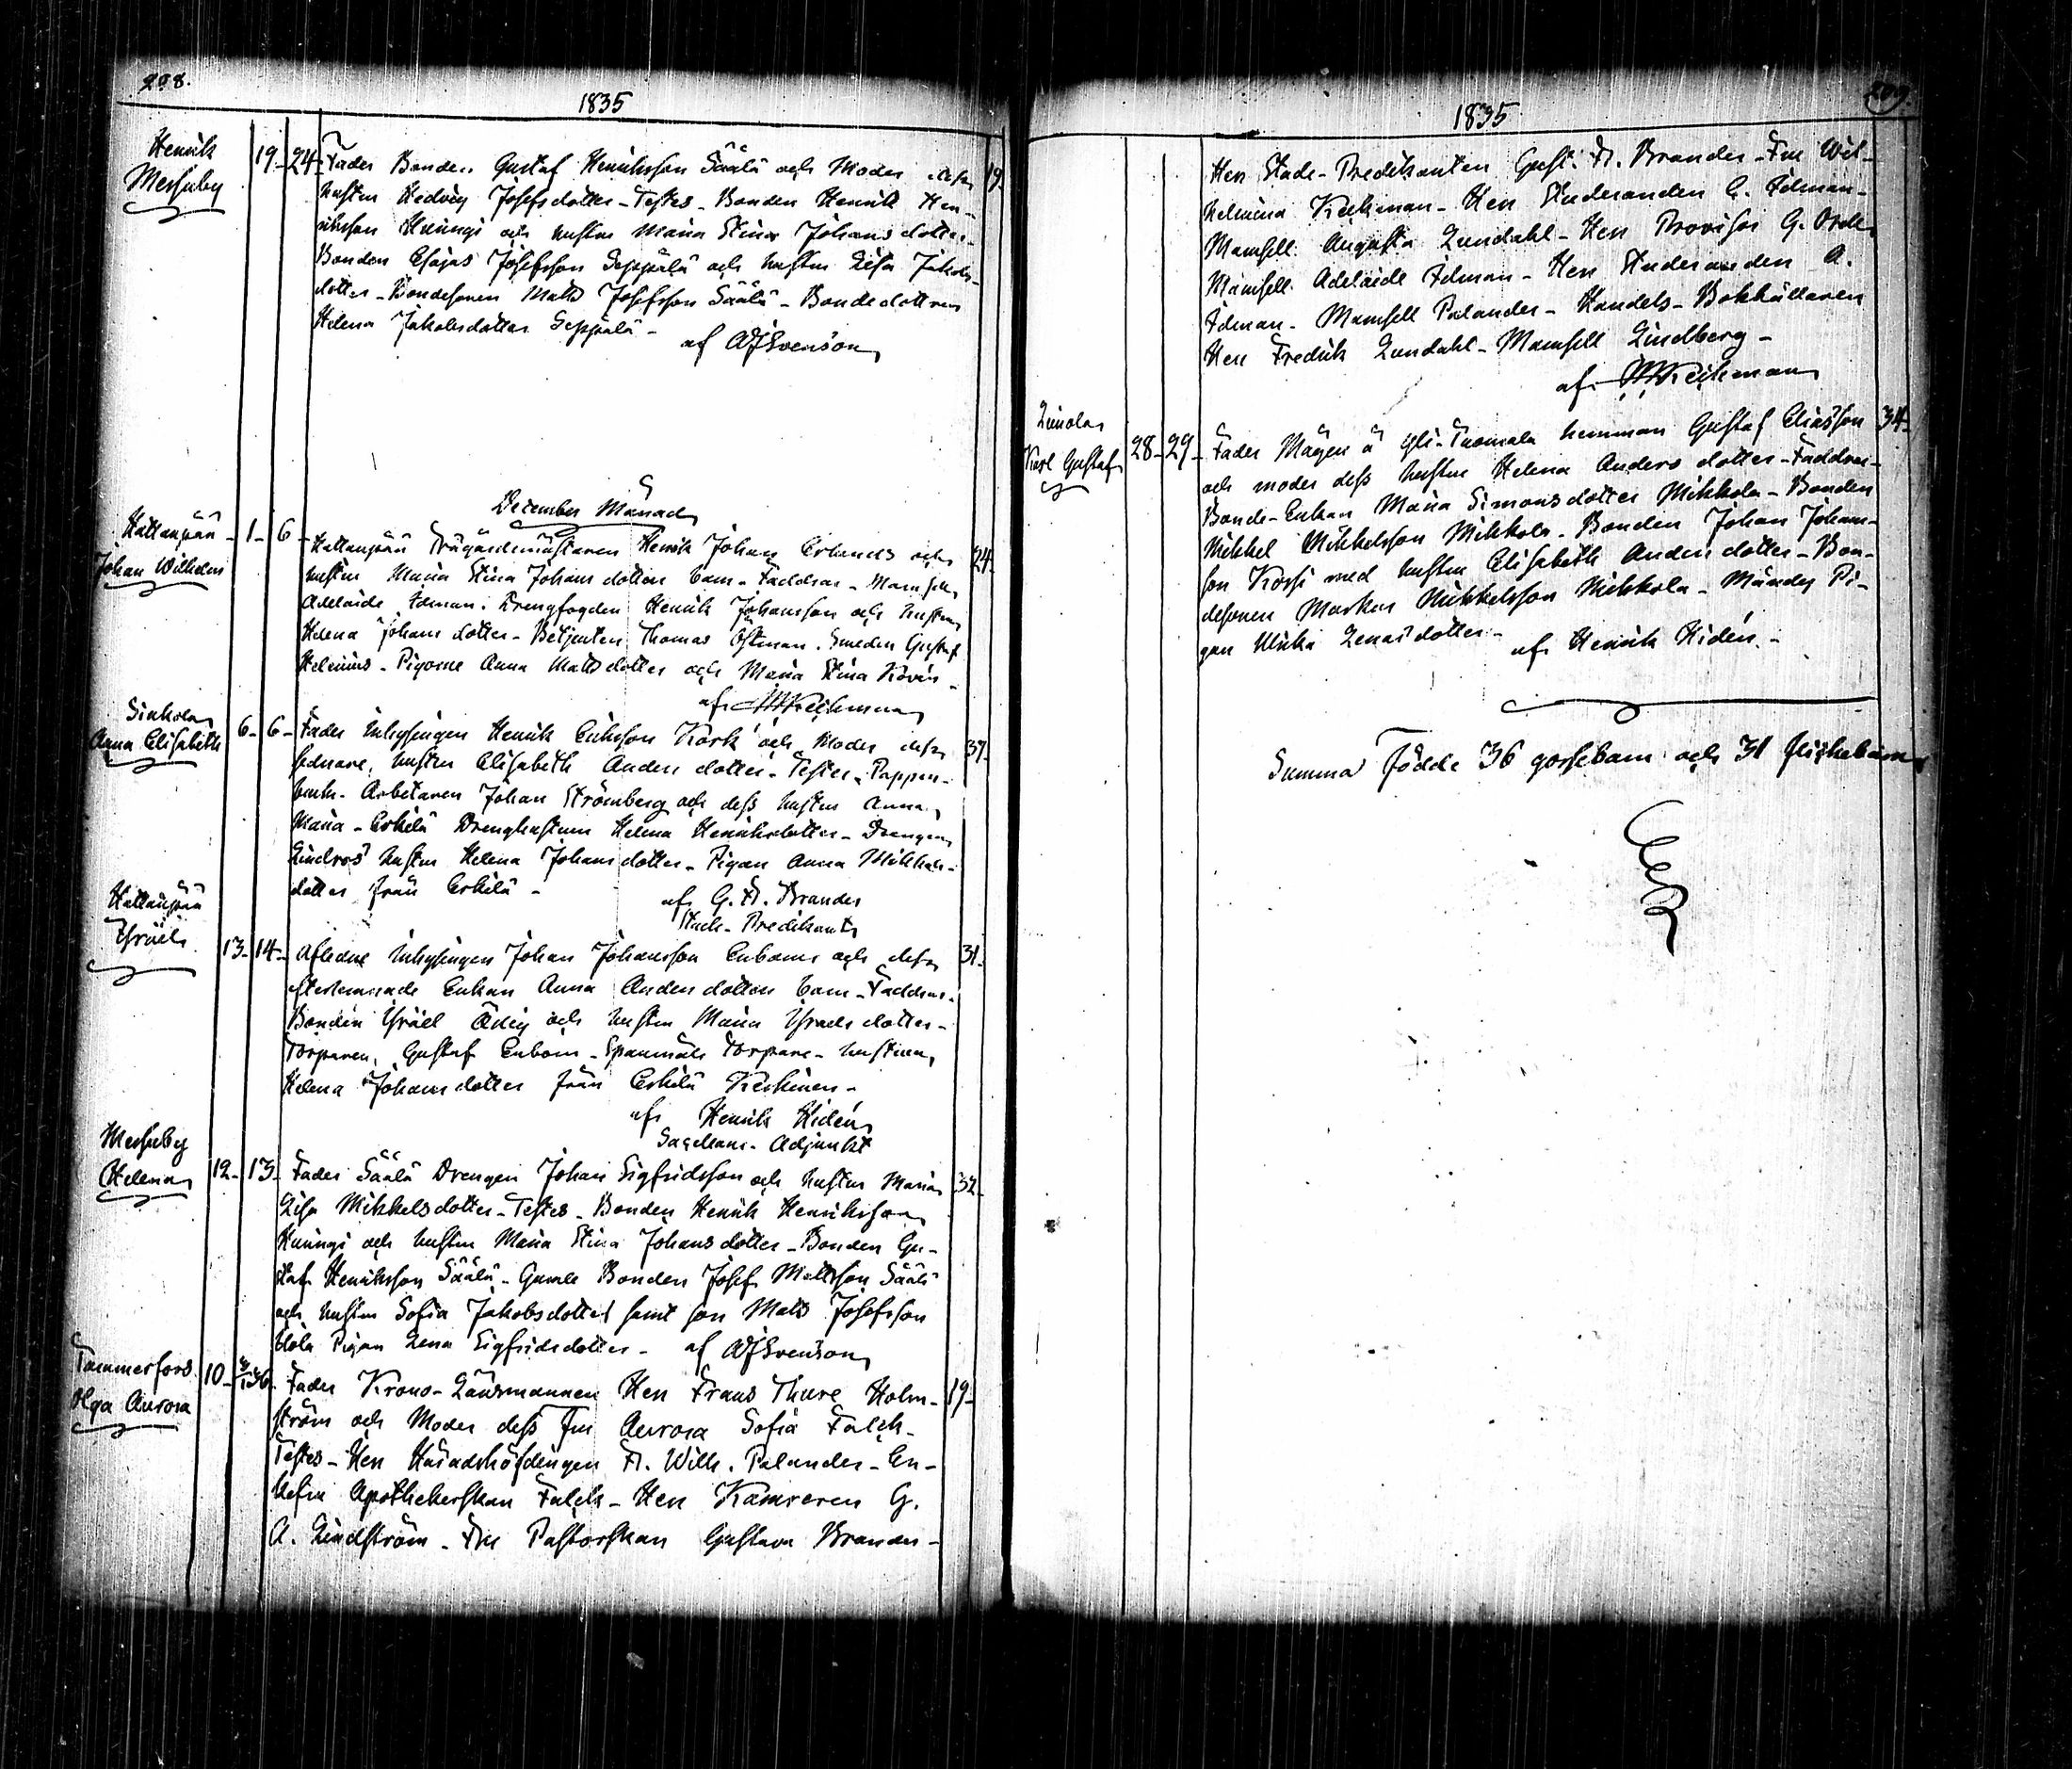 208.
1835
Henrik
Messuby
19 - 24 - Fader Bonden Gustaf Henriksson Säälä och Moder dess 19.
hustru Hedvig Josefsdotter - Testes - Bonden Henrik Hen-
riksson Kuningi och hustru Maria Stina Johansdotter -
Bonden Esajas Josefsson Seppälä och hustru Lisa Jakobs-
dotter - Bondesonen Matts Josefsson Säälä - Bondedottren
Helena Jakobsdotter Seppälä -
af AJSvenson
December Månad
Hattanpää
Johan Wilhelm
1 - 6 - Hattanpää Trägårdsmästaren Henrik Johan Erlunds och 24.
hustru Maria Stina Johans dotters barn - Faddrar - Mamsell
Adelaide Idman. Drengfogden Henrik Johansson och hustru
Helena Johans dotter - Betjenten Thomas Östman. Smeden Gustaf
Helenius - Pigorne Anna Mattsdotter och Maria Stina
af Keckman
Sinkola
Anna Elisabeth
6 - 6 - Fader Inhysingen Henrik Eriksson Kork och Moder dess 37.
sednare, hustru Elisabeth Anders dotter - Testes - Pappers-
bruks - Arbetaren Johan Strömberg och dess hustru Anna
Maria - Erkilä Drenghustrun Helena Henriksdotter - Drengen
Lindros hustru Helena Johans dotter - Pigan Anna Mikkels-
dotter från Erkilä -
af G. F. Brander
Stads - Predikant
Hattanpää
Israël
13 - 14 - Aflidne Inhysingen Johan Johansson Enboms och dess 31.
efterlemnade Enkan Anna Anders dotters barn - Faddrar -
Bonden Israël och hustru Maria Israels dotter -
Torparen, Gustaf Enbom - Torpare - hustrun,
Helena Johansdotter från Erkilä Keskinen -
af Henrik Hidén
Sacellans - Adjunkt
Messuby
Helena
12 - 13 - Fader Säälä Drengen Johan Sigfridsson och hustru Maria 32 -
Lisa Mikkelsdotter - Testes - Bonden Henrik Henriksson
Kuningi och hustru Maria Stina Johans dotter - Bonden Gu-
staf Henriksson Säälä - Gamle Bonden Josef Mattsson Säälä
och hustru Sofia Jakobsdotter samt son Matts Josefsson
Pigan Lena Sigfridsdotter - af AJSvenson
Tammerfors
Olga Aurora
10 - Fader Krono - Länsmannen Herr Frans Thure Holm- 19 -
ström och Moder dess Fru Aurora Sofia Falck -
Testes - Herr Häradshöfdingen F. Wilh. Palander - En-
kefru Apothekerskan Falck - Herr Kamreren G.
A. Lindström - Fru Pastorskan Gustava Brander -
209.
1835
Herr Stads - Predikanten Gust. F. Brander - Fru Wil-
helmina Keckman - Herr Studeranden C. Idman -
Mamsell Augusta Lundahl - Herr Provisor G.
Mamsell Adelaide Idman - Herr Studeranden A.
Idman - Mamsell Palander - Handels - Bokhållaren
Herr Fredrik Lundahl - Mamsell Lindberg -
af Keckman
Karl Gustaf
28 - 29 - Fader Mågen å Yli - Tuomala hemman Gustaf Eliasson 34 -
och moder dess hustru Helena Anders dotter - Faddrar -
Bonde - Enkan Maria Simonsdotter Mikkola - Bonden
Mikkel Mikkelsson Mikkola - Bonden Johan Johans-
son Korpi med hustru Elisabeth Anders dotter - Bon-
desonen Markus Mikkelsson Mikkola - Myndig Pi-
gan Ulrika dotter -
af Henrik Hidén -
Summa Födde 36 gossebarn och 31 flickebarn